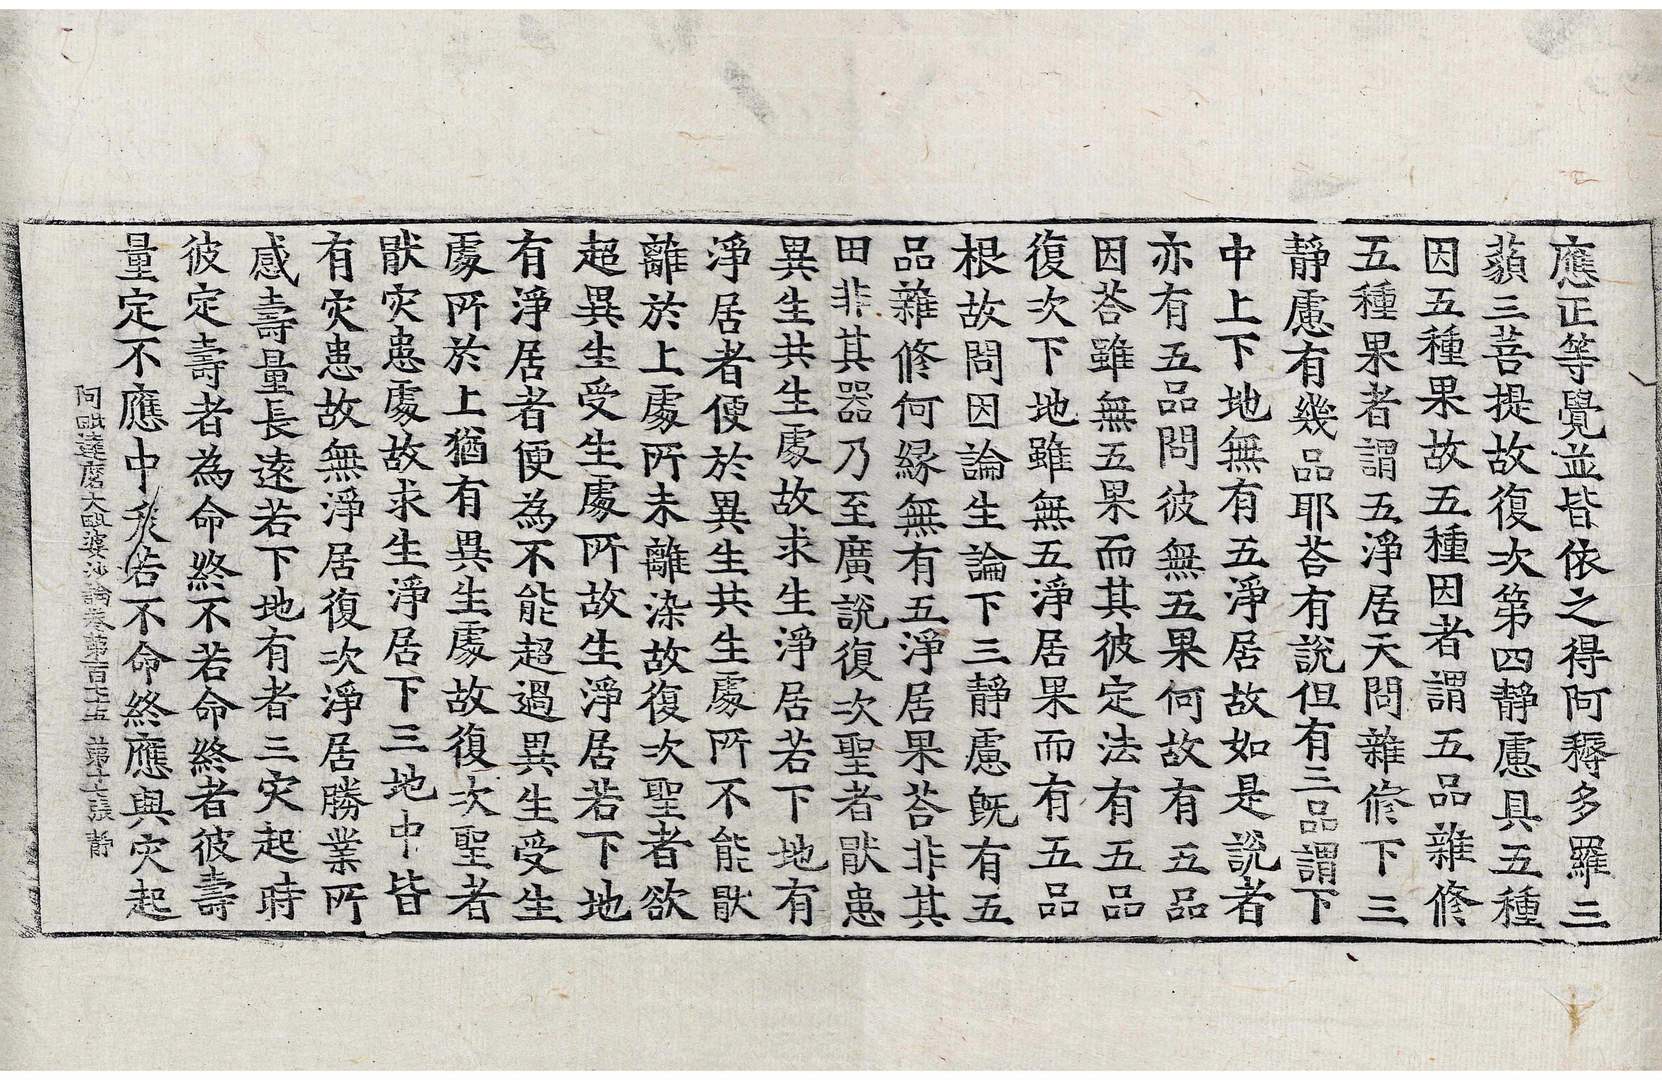 應正等覺並皆依之得阿耨多羅三
藐三菩提故復次第四靜慮具五種
因五種果故五種因者謂五品雜修
五種果者謂五淨居天問雜修下三
靜慮有幾品耶荅有說但有三品謂下
中上下地無有五淨居故如是說者
亦有五品問彼無五果何故有五品
因荅雖無五果而其彼定法有五品
復次下地雖無五淨居果而有五品
根故問因論生論下三靜慮旣有五
品雜修何緣無有五淨居果荅非其
田非其器乃至廣說復次聖者猒患
異生共生處故求生淨居若下地有
淨居者便於異生共生處所不能猒
離於上處所未離染故復次聖者欲
超異生受生處所故生淨居若下地
有淨居者便為不能超過異生受生
處所於上猶有異生處故復次聖者
猒灾患處故求生淨居下三地中皆
有灾患故無淨居復次淨居勝業所
感壽量長遠若下地有者三灾起時
彼定壽者為命終不若命終者彼壽
量定不應中夭若不命終應與灾起
阿毗達磨大毗婆沙論卷第一百七十五 第十七張 靜